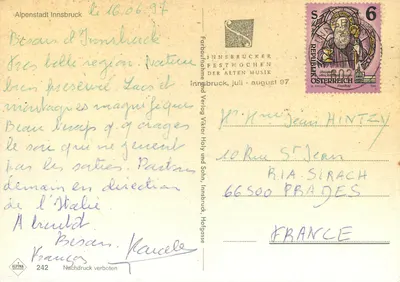 Alpenstadt Innsbruck
le 16.06.97
Bisous d'Innsbruck
Très belle région. Nature
bien préservée. Lacs et
montagnes magnifiques
Beaucoup d'orages
le soir qui ne gênent
pas les sorties. Partons
demain en direction
de l'Italie.
A bientôt
Bisous
François
242 Nachdruck verboten
Farbaufnahme und Verlag Viktor Holy und Sohn, Innsbruck, Hofgasse
INNSBRUCKER
FESTWOCHEN
DER ALTEN MUSIK
Innsbruck, juli - august 97
S 6
REPUBLIK
ÖSTERREICH
Mr Mme Jean HINTZY
10 Rue St Jean
RIA.SIRACH
66500 PRADES
FRANCE